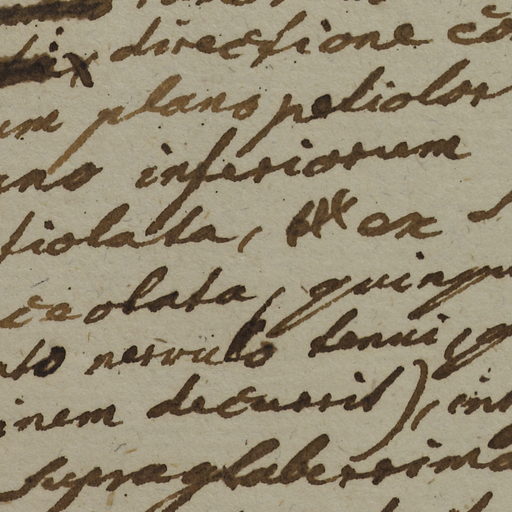 directione cō
um plano petiolor
ano inferiorum
tiolata, ex
ceolata, quinqu
nato nervulo tenui, q
inem decurrit), in
supra glaberrima